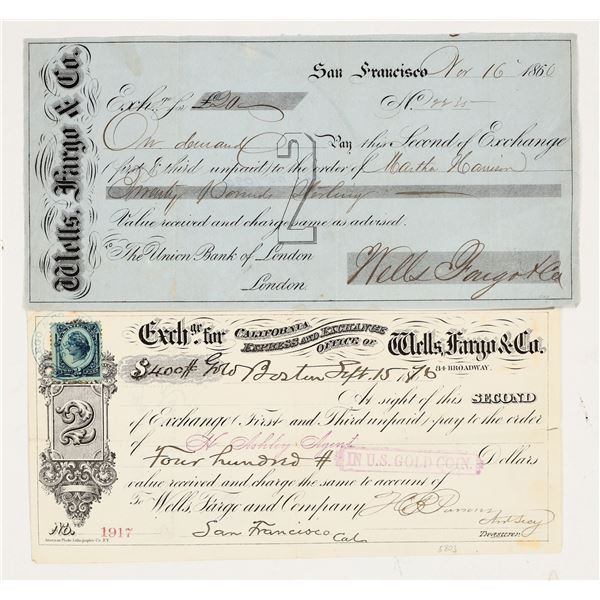 Wells, Fargo & Co.
San Francisco Nov 16 1866
Exchge. for £20
No.
On demand Pay this Second of Exchange
2
(first & third unpaid) to the order of Martha Harrison
Twenty Pounds Sterling
Value received and charge same as advised.
To The Union Bank of London
London.
Wells Fargo & Co
Exchge. for CALIFORNIA EXPRESS AND EXCHANGE OFFICE OF Wells, Fargo & Co.
84 BROADWAY.
$400 Gold Boston Sept. 15, 1876
At sight of this SECOND
2
of Exchange (First and Third unpaid) pay to the order
of H Ashley Agent
Four hundred Dollars
IN U.S. GOLD COIN.
value received and charge the same to account of
To Wells, Fargo and Company H B Parsons
Asst Secy
No. 1917 San Francisco Cal Treasurer.
American Photo-Lithographic Co. N.Y.